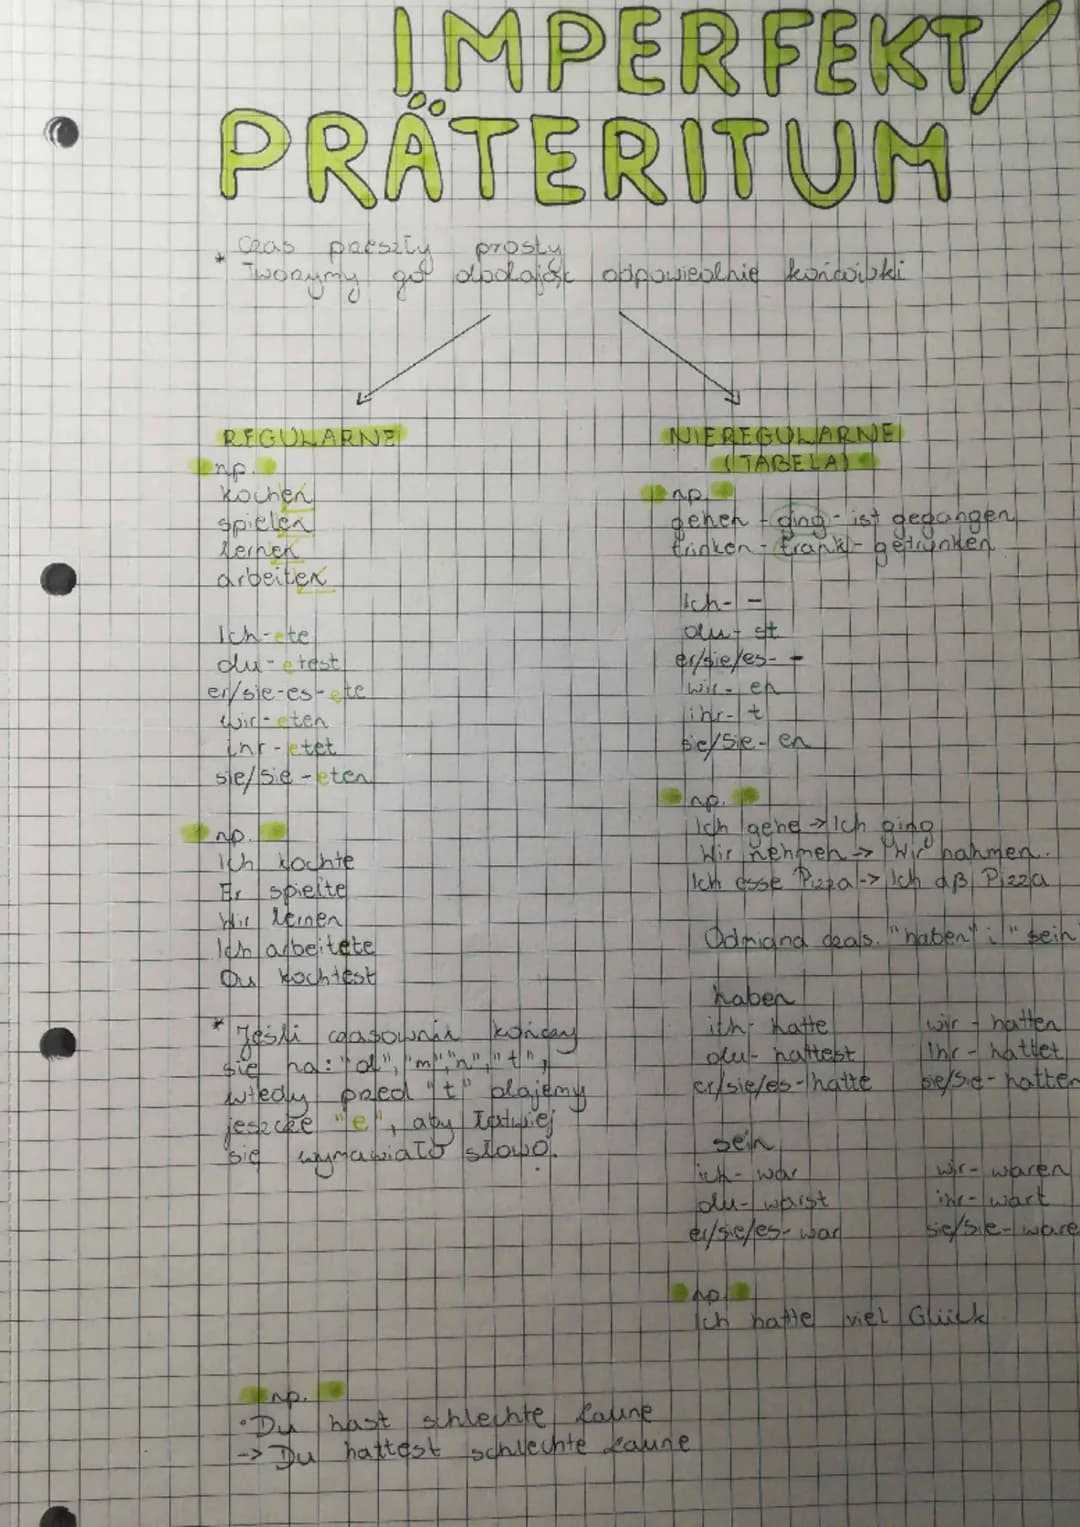 IMPERFEKT/
PRÄTERITUM
* Czas przeszły prosty
Tworzymy go dodając odpowiednie końcówki
REGULARNE
np.
kochen
spielen
lernen
arbeiten
Ich-ete
du-etest
er/sie-es-ete
wir-eten
ihr-etet
sie/Sie-eten
np.
Ich kochte
Er spielte
Wir lernen
Ich arbeitete
Du kochtest
* Jeśli czasownik kończy
się na: "d", "m", "n", "t",
wtedy przed "t" dajemy
jeszcze "e", aby łatwiej
się wymawiało słowo.
NIEREGULARNE
(TABELA)
np.
gehen - ging - ist gegangen
trinken - trank - getrunken
Ich- -
du- st
er/sie/es- -
wir- en
ihr- t
sie/Sie- en
np.
Ich gehe -> Ich ging
Wir nehmen -> Wir nahmen.
Ich esse Pizza -> Ich aß Pizza
Odmiana czas. "haben" i "sein
haben
ich- hatte
du- hattest
er/sie/es- hatte
wir- hatten
Ihr- hattet
sie/Sie- hatten
sein
ich- war
du- warst
er/sie/es- war
wir- waren
ihr- wart
sie/Sie- ware
np.
Ich hatte viel Glück
np.
• Du hast schlechte Laune
-> Du hattest schlechte Laune